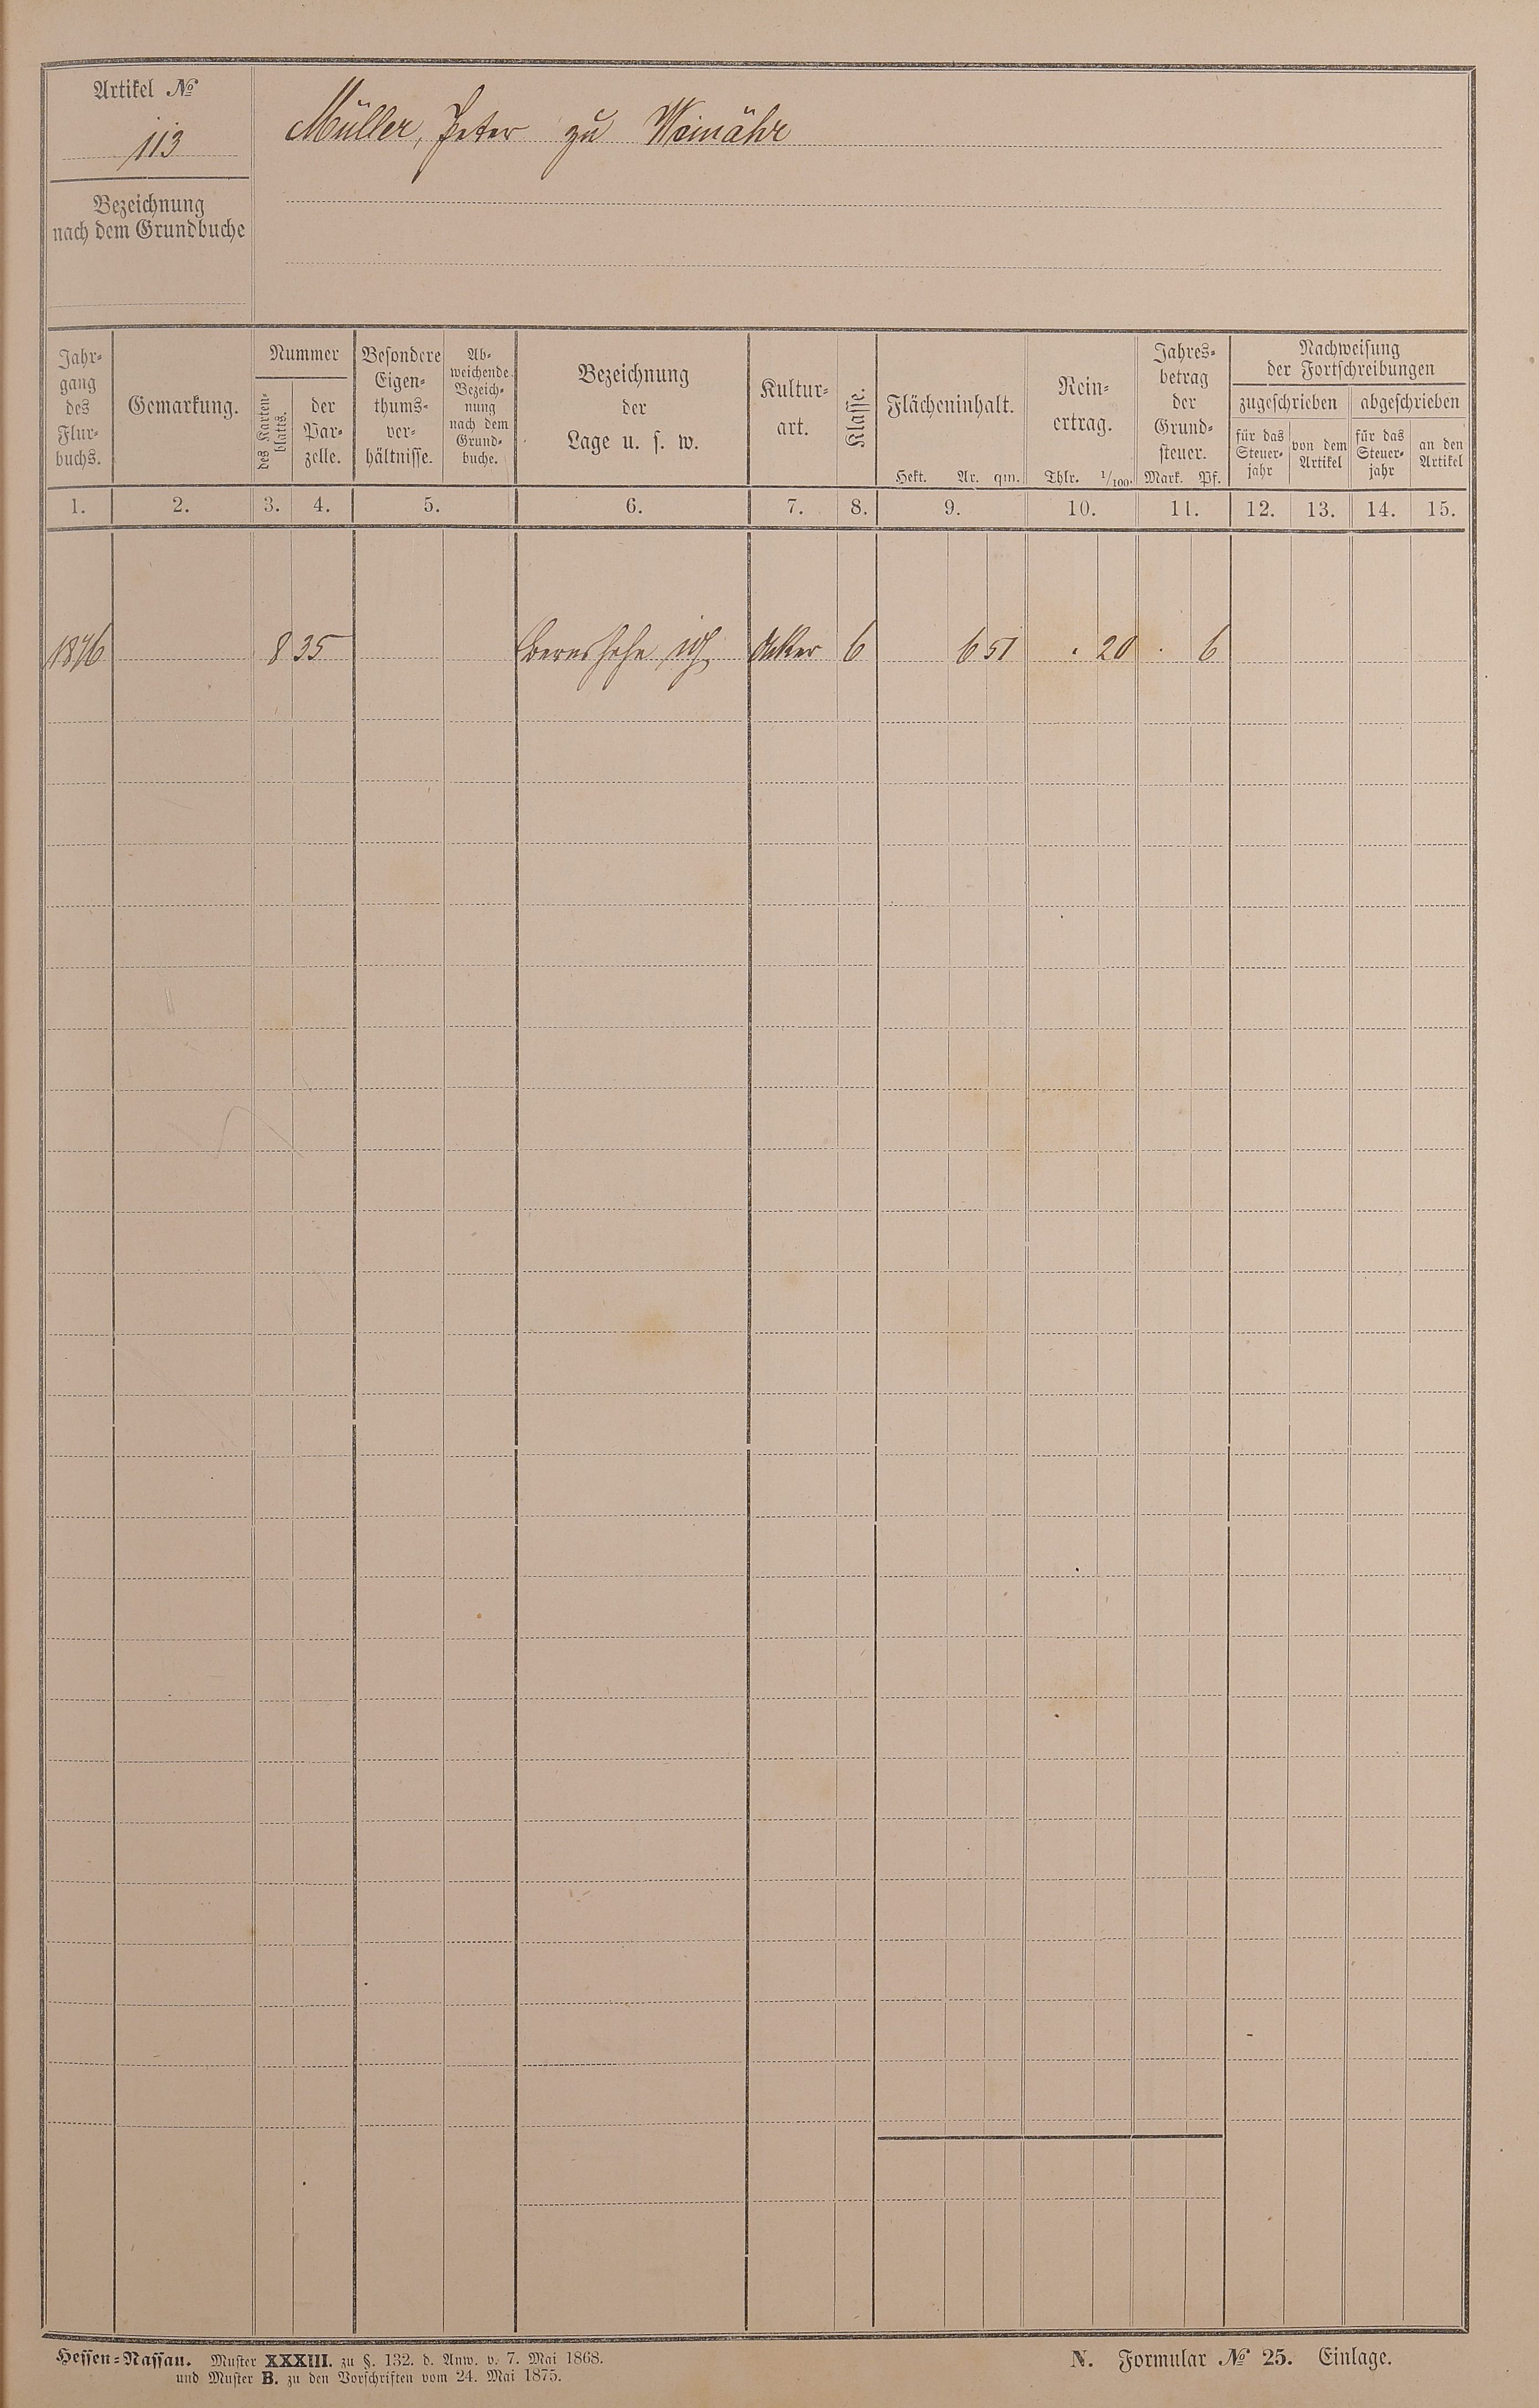 Artikel №
113
Bezeichnung
nach dem Grundbuche
Müller, Peter zu Weinähr
Jahr-
gang
des
Flur-
buchs.
Gemarkung.
Nummer
des Karten-
blatts.
der
Par-
zelle.
Besondere
Eigen-
thums-
ver-
hältnisse.
Ab-
weichende
Bezeich-
nung
nach dem
Grund-
buche.
Bezeichnung
der
Lage u. s. w.
Kultur-
art.
Klasse.
Flächeninhalt.
Hekt. Ar. qm.
Rein-
ertrag.
Thlr. 1/100.
Jahres-
betrag
der
Grund-
steuer.
Mark. Pf.
Nachweisung
der Fortschreibungen
zugeschrieben abgeschrieben
für das
Steuer-
jahr
von dem
Artikel
für das
Steuer-
jahr
an den
Artikel
1. 2. 3. 4. 5. 6. 7. 8. 9. 10. 11. 12. 13. 14. 15.
1876 8 35 Acker 6 6 51 . 20 . 6
Hessen-Nassau. Muster XXXIII. zu §. 132. d. Anw. v. 7. Mai 1868.
und Muster B. zu den Vorschriften vom 24. Mai 1875.
N. Formular № 25. Einlage.